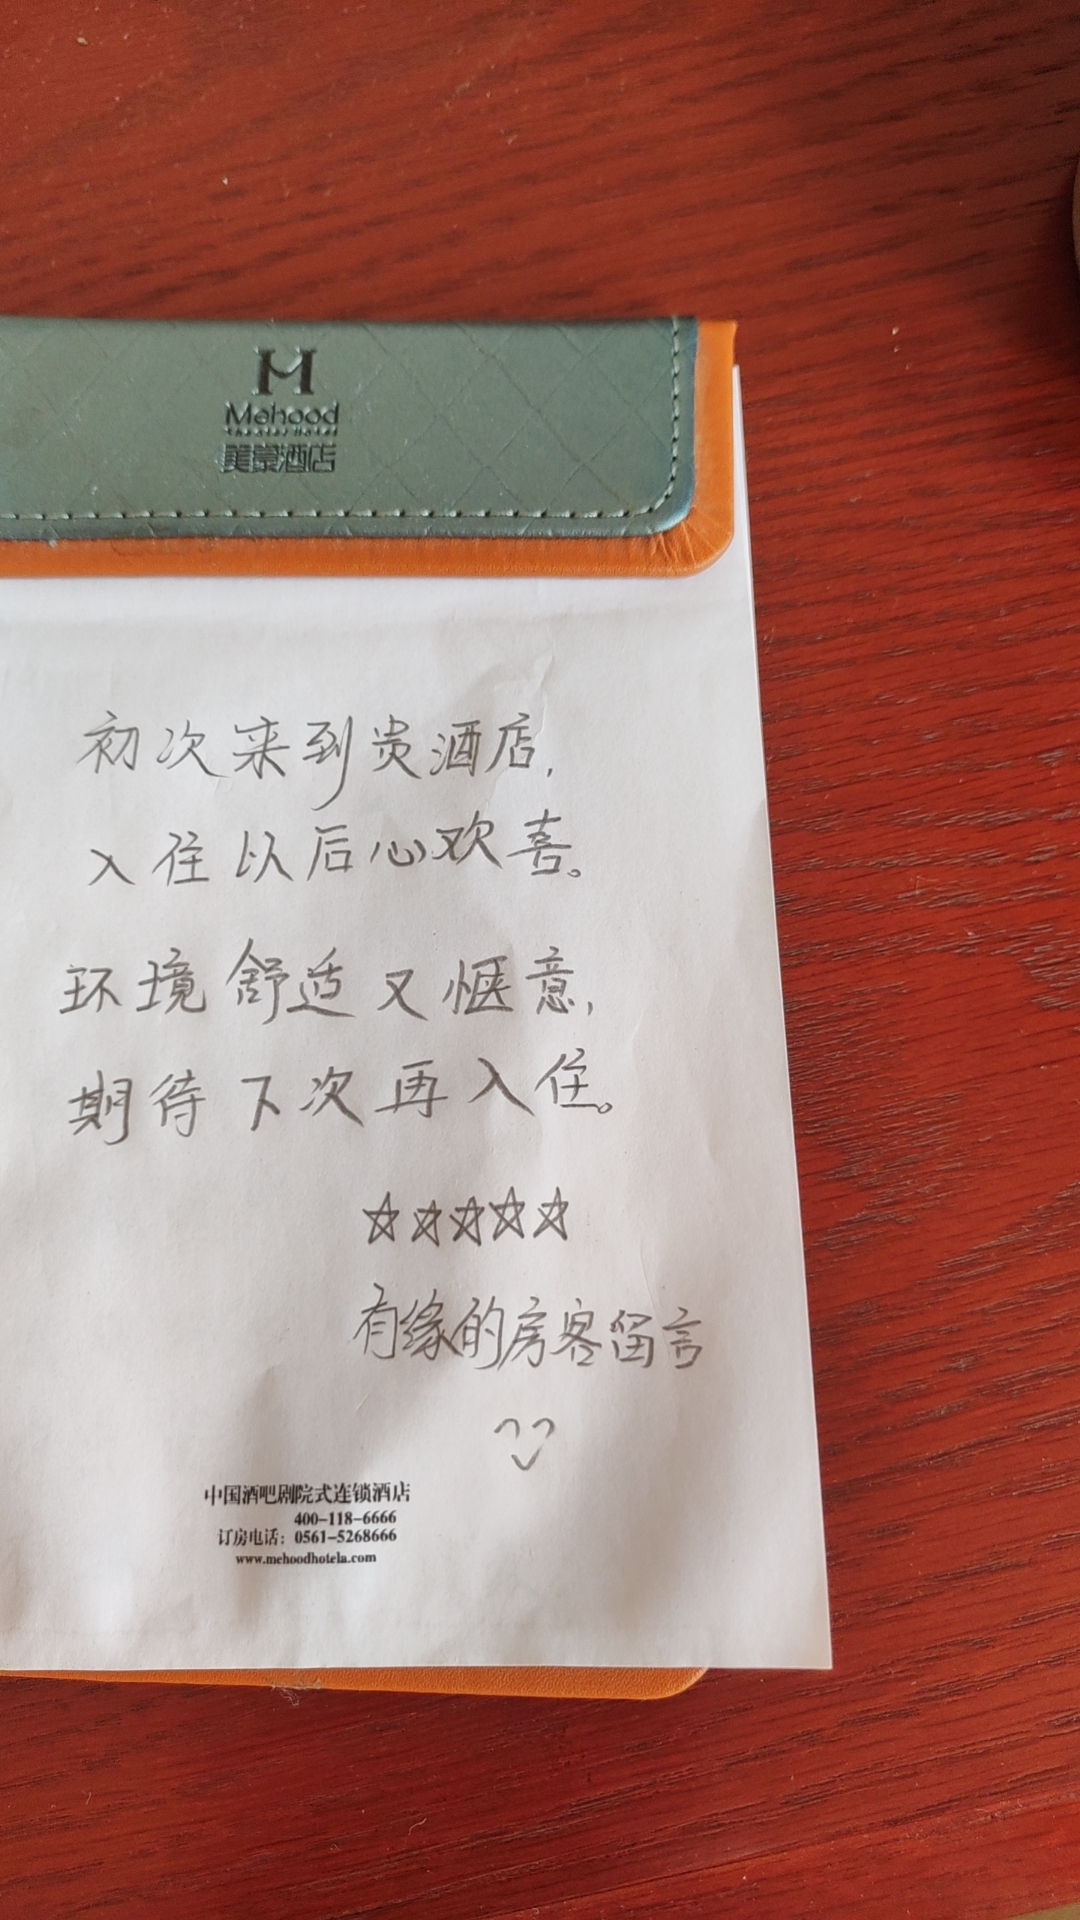 Mehood
Theater Hotel
美豪酒店
初次来到贵酒店,
入住以后心欢喜。
环境舒适又惬意,
期待下次再入住。
☆☆☆☆☆
有缘的房客留言
中国酒吧剧院式连锁酒店
400-118-6666
订房电话：0561-5268666
www.mehoodhotela.com